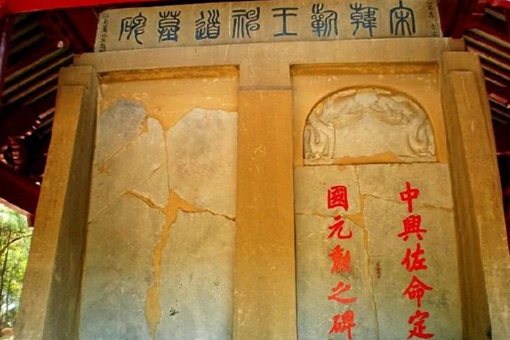 宋韓蘄王祠道墓碑
中興佐命定
國元勳之碑